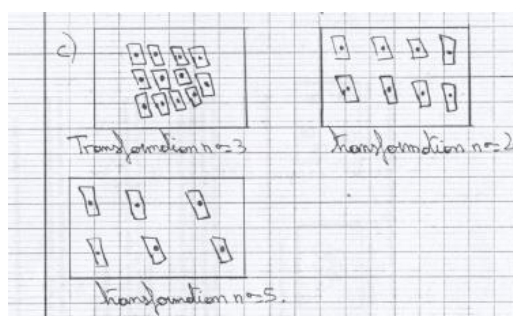 c)
Transformation n=3
transformation n=2
transformation n=5.